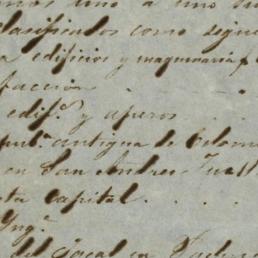 uno a uno su
clasificados como sigue
edificios y maquinaria
facción
edif.s y aperos
antigua de Colom
en San Andres Tuxt
ta capital . . .
Yng.o
del Jacal en